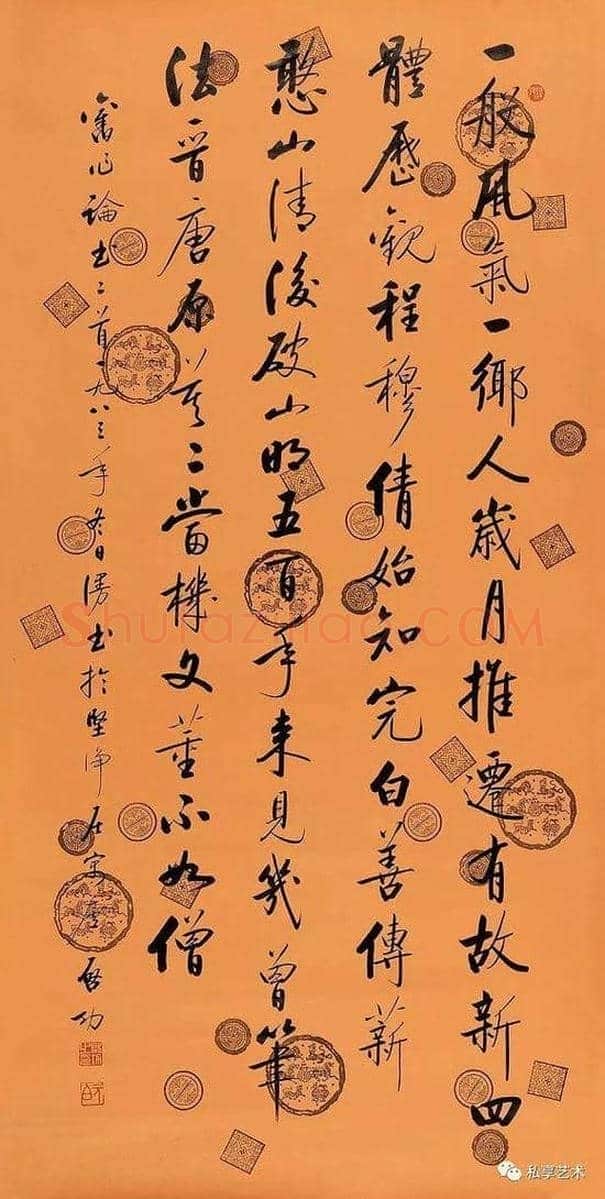 一般風氣一鄉人歲月推遷有故新四
體歷觀程穆倩始知完白善傳薪
憨山清後破山明五百年來見幾曾筆
法晉唐原莫二當機文董不如僧
舊作論書二首一九八三年冬日漫書於堅淨居寓廬 啟功
私享艺术